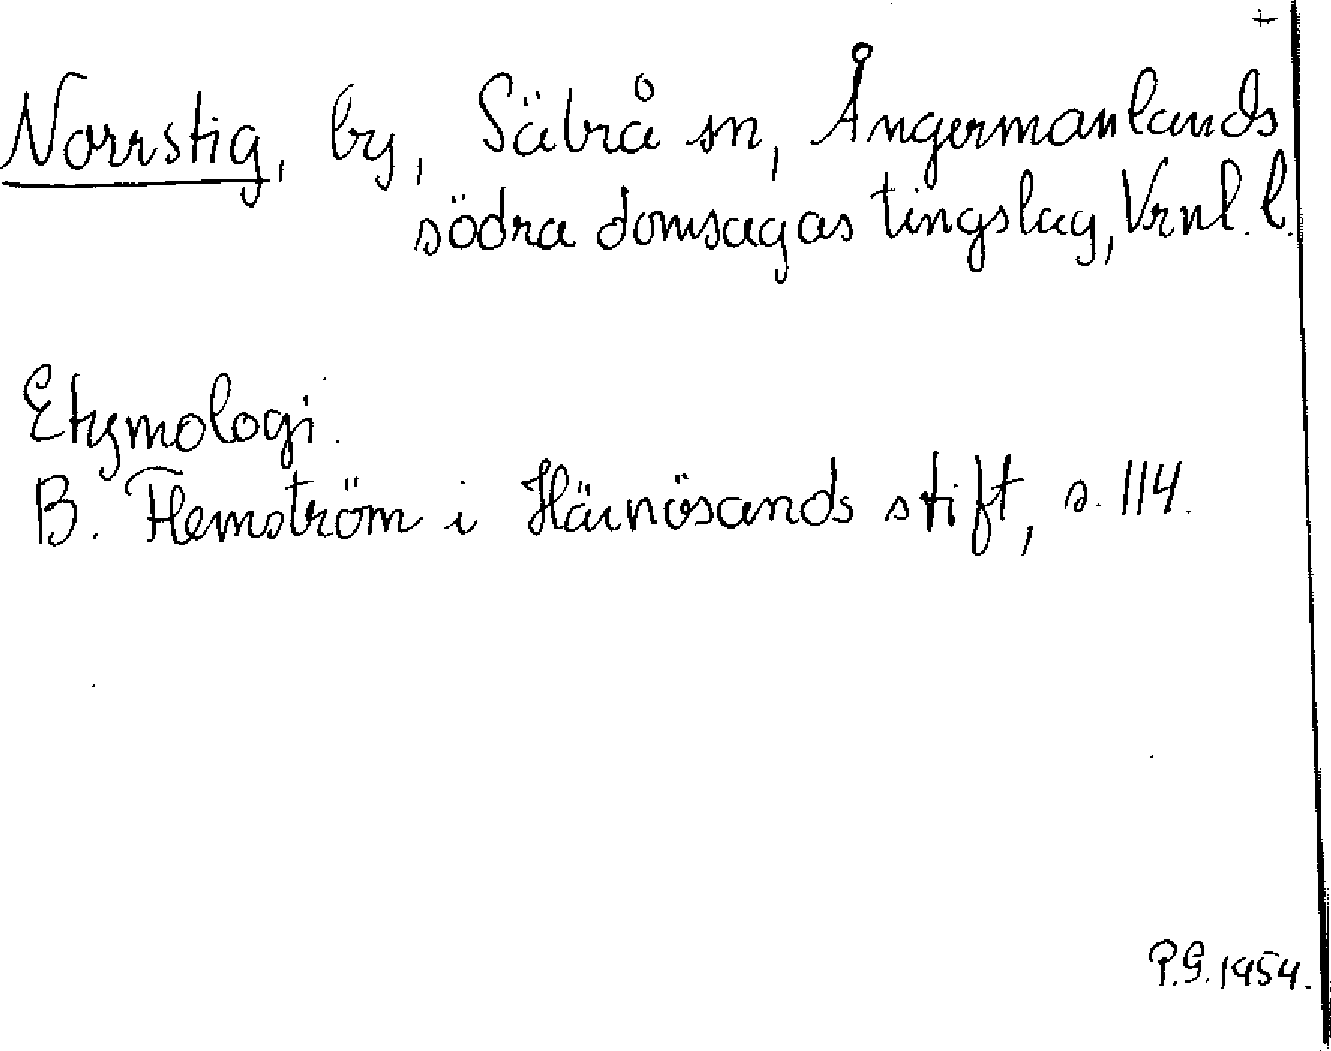 +
Norrstig, by, Säbrå sn, Ångermanlands
södra domsagas tingslag, Vrnl. l.
Etymologi.
B. Flemström i Härnösands stift, s. 114.
P.G. 1954.